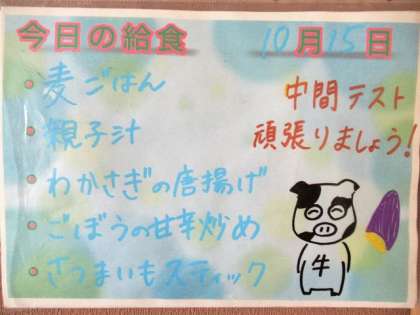 今日の給食 10月15日
麦ごはん
親子汁
わかさぎの唐揚げ
ごぼうの甘辛炒め
さつまいもスティック
中間テスト
頑張りましょう!
牛